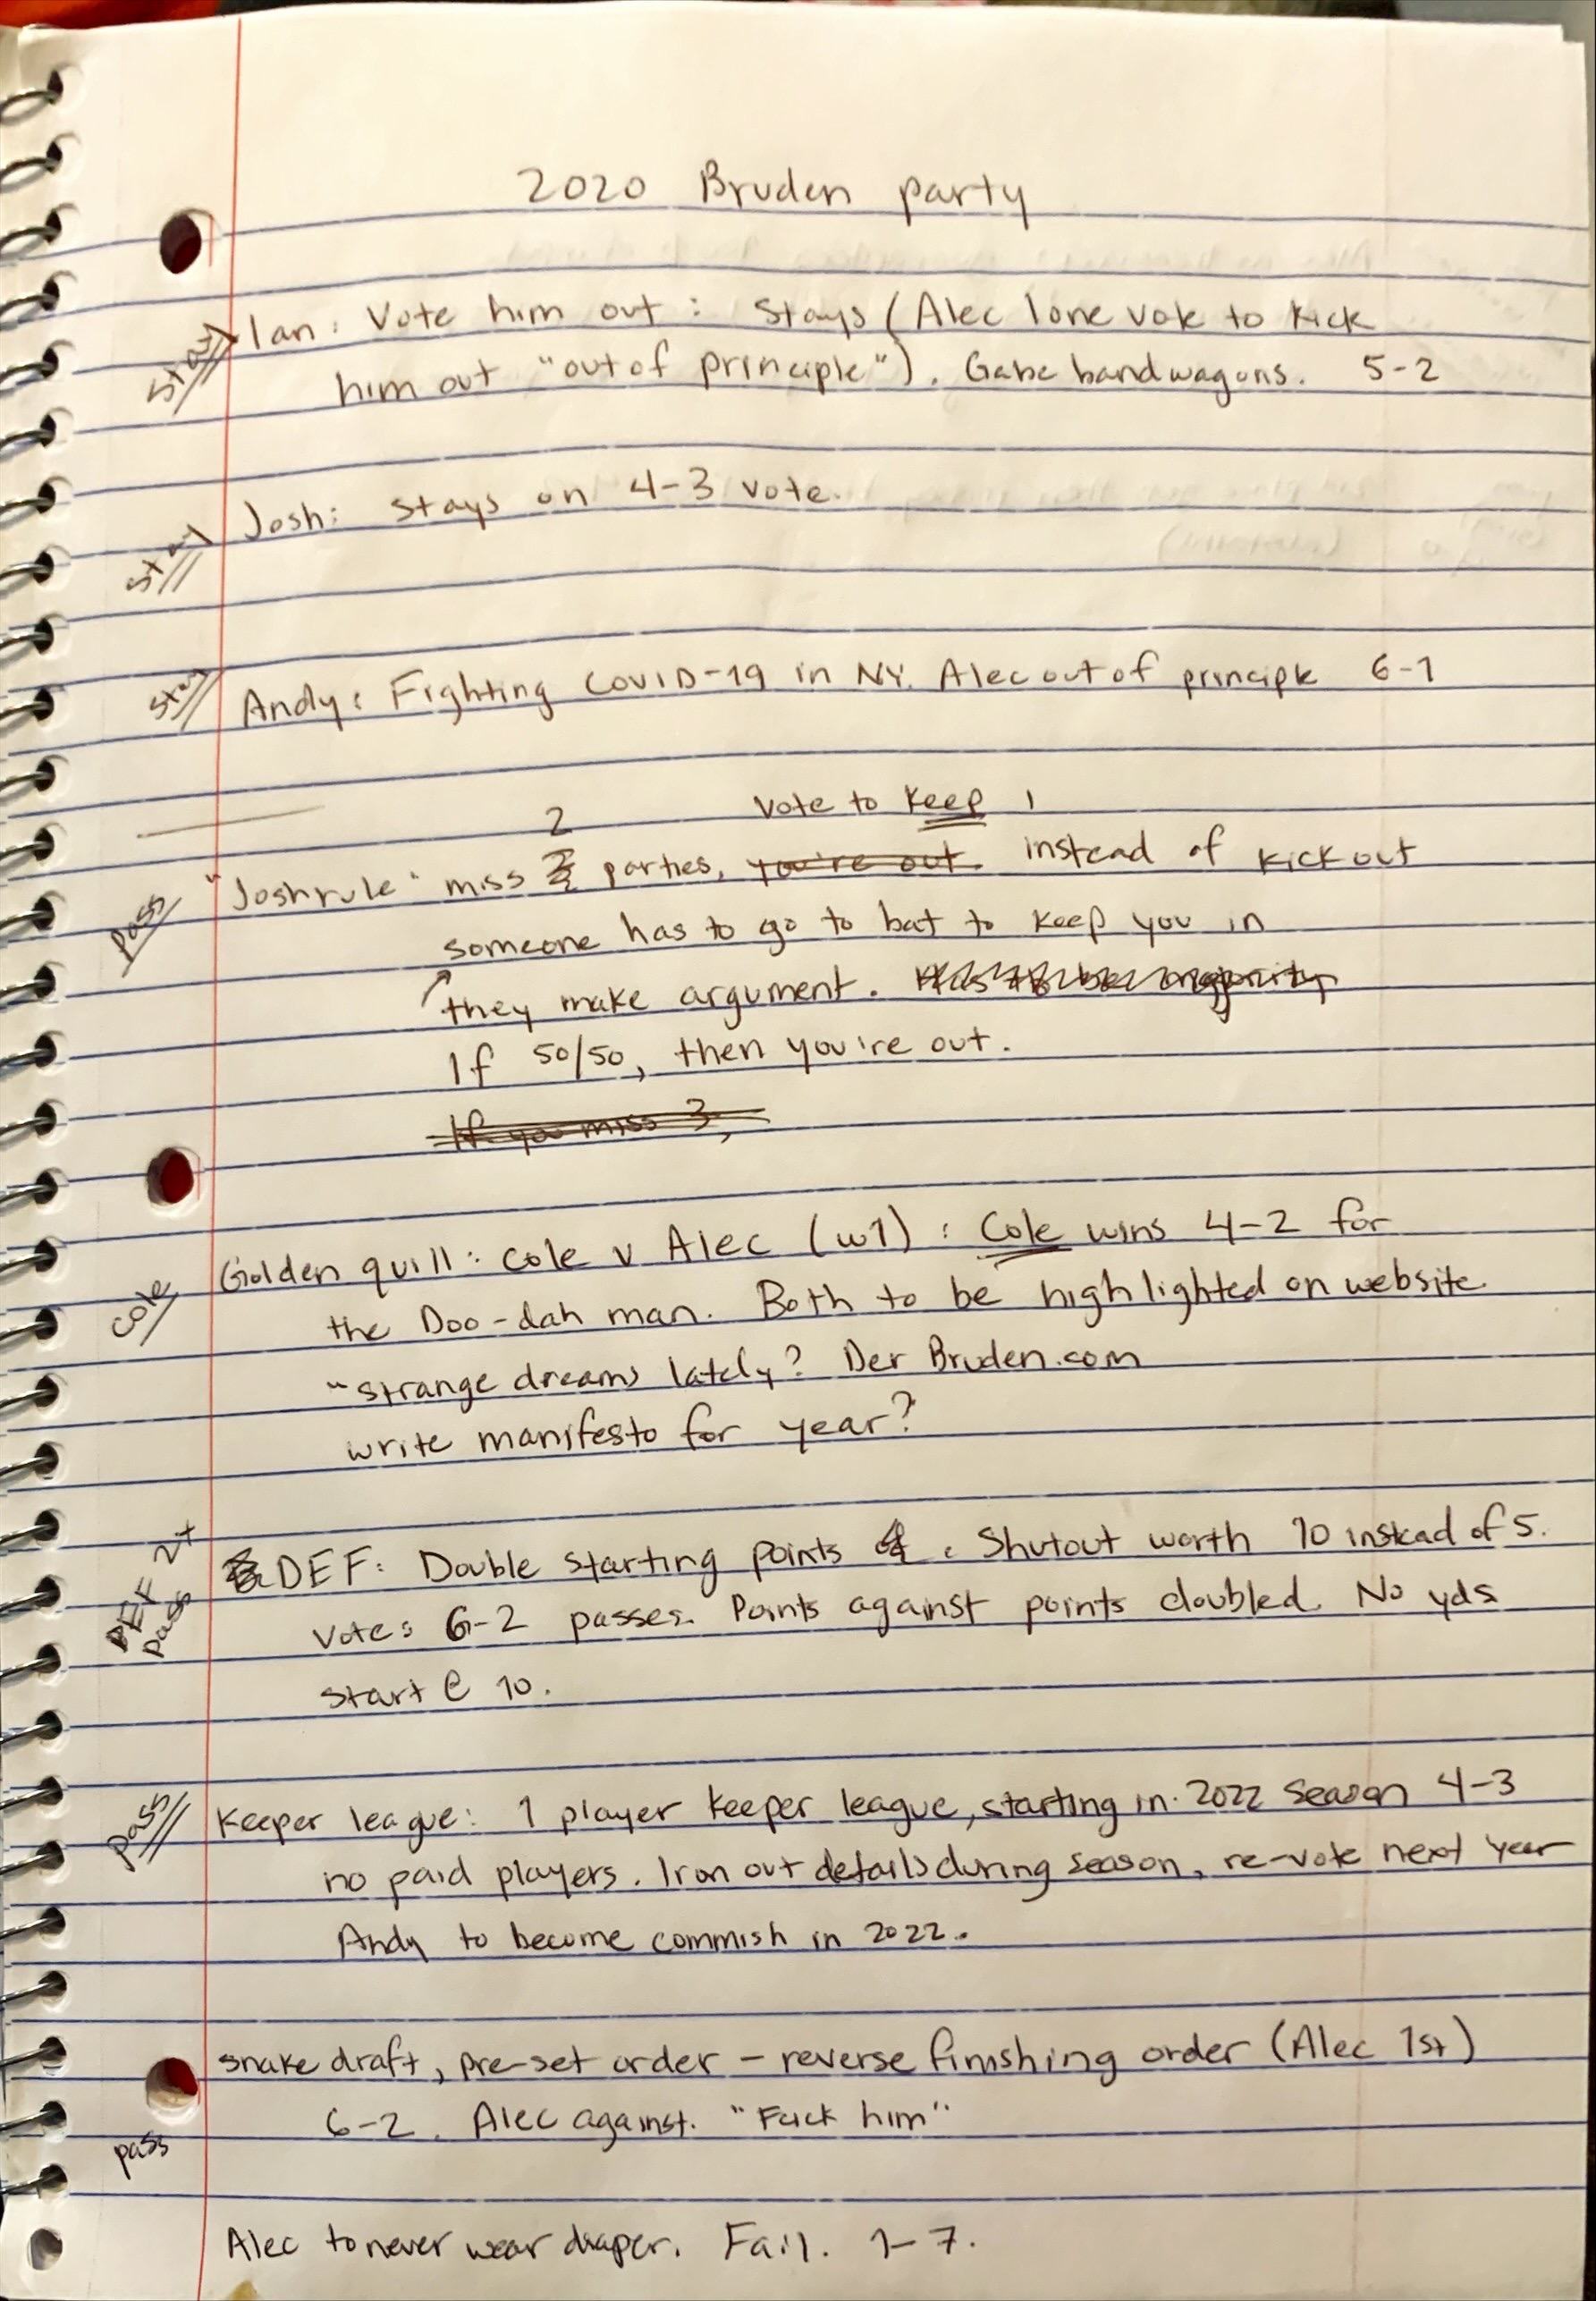 2020 Bruden party
Stay Ian: Vote him out: Stays (Alec lone vote to kick
him out "out of principle"). Gabe bandwagons. 5-2
Stay Josh: stays on 4-3 vote.
Stay Andy: Fighting COVID-19 in NY. Alec out of principle 6-1
2 Vote to keep 1
Pass "Joshrule" miss parties, you're out. instead of kick out
someone has to go to bat to keep you in
they make argument. Has to be majority
If 50/50, then you're out.
If you miss 3,
Cole Golden quill: Cole v Alec (w1): Cole wins 4-2 for
the Doo-dah man. Both to be highlighted on website
"strange dreams lately? Der Bruden.com
write manifesto for year?
DEF 2x pass DEF: Double starting points. Shutout worth 10 instead of 5.
Vote: 6-2 passes. Points against points doubled. No yds
start @ 10.
Pass Keeper league: 1 player keeper league, starting in 2022 season 4-3
no paid players. Iron out details during season, re-vote next year
Andy to become commish in 2022.
snake draft, pre-set order - reverse finishing order (Alec 1st)
pass 6-2. Alec against. "Fuck him"
Alec to never wear diaper. Fail. 1-7.